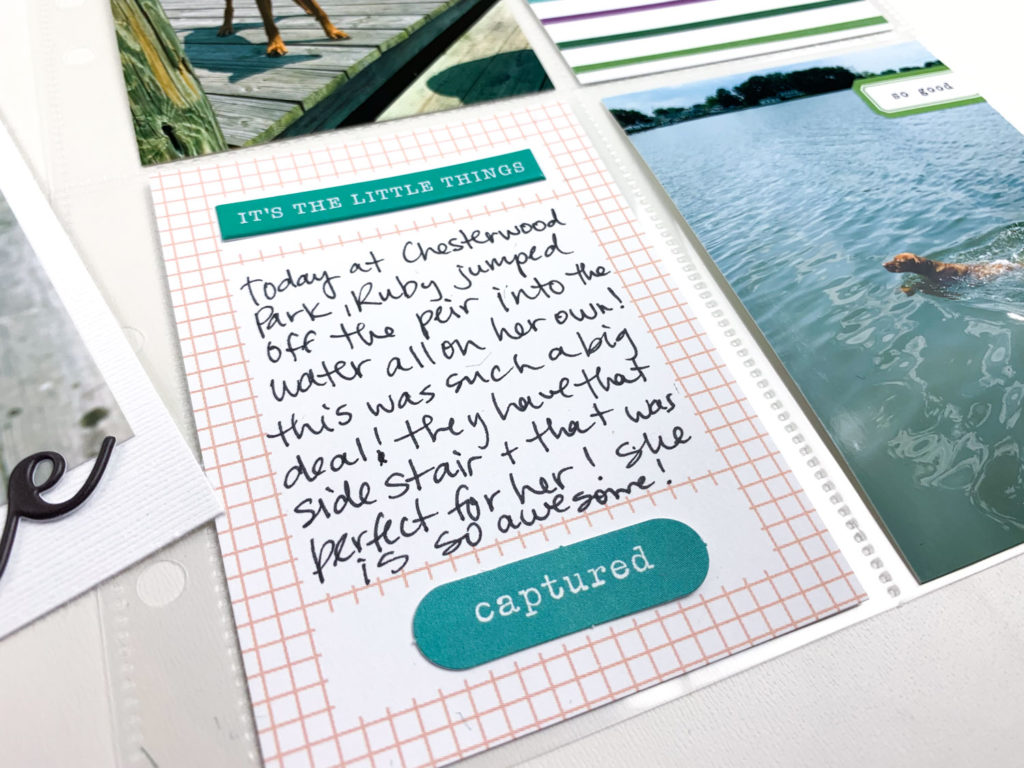 so good
IT'S THE LITTLE THINGS
today at Chesterwood
Park, Ruby jumped
off the peir into the
water all on her own!
this was such a big
deal! they have that
side stair + that was
perfect for her! she
is so awesome!
captured